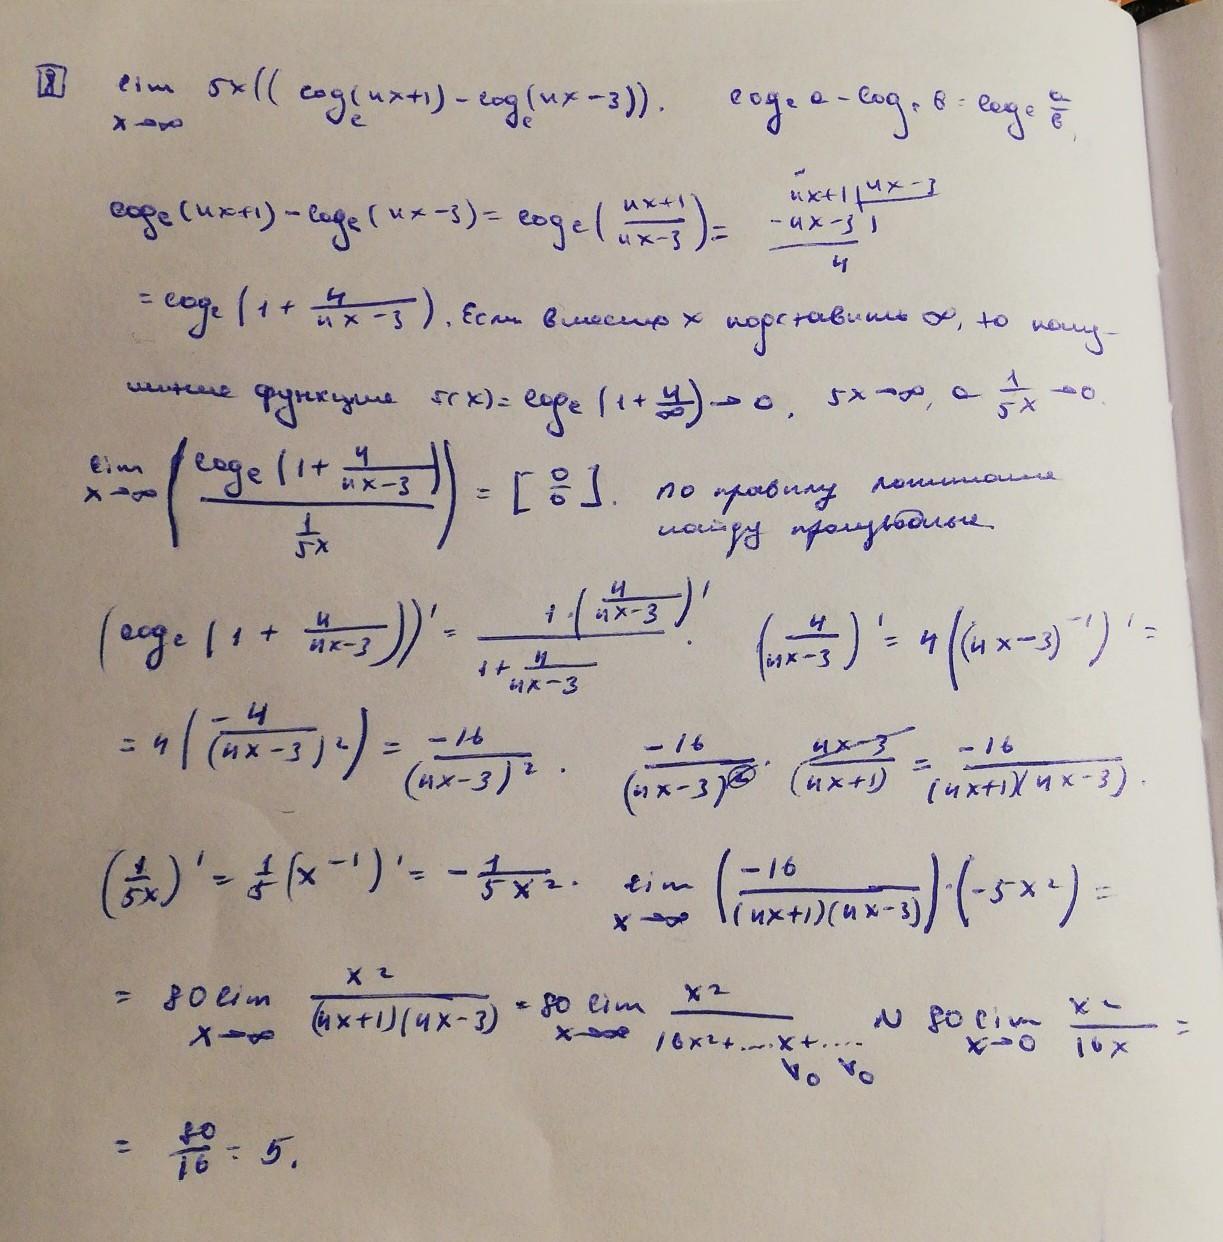 8 lim x→∞ 5x((log_e(4x+1)-log_e(4x-3)). log_e a - log_e b = log_e a/b.
log_e(4x+1)-log_e(4x-3)=log_e(4x+1/4x-3)= 4x+1 | 4x-3
-4x-3 | 1
4
=log_e(1+4/4x-3). Если вместо x подставить ∞, то
функции f(x)=log_e(1+4/∞)→0, 5x→∞, а 1/5x→0.
lim x→∞ (log_e(1+4/4x-3)/1/5x) = [0/0]. По правилу Лопиталя
найду производные.
(log_e(1+4/4x-3))' = 1·(4/4x-3)'/1+4/4x-3. (4/4x-3)' = 4((4x-3)^-1)' =
= 4(-4/(4x-3)^2) = -16/(4x-3)^2. -16/(4x-3)^2 · 4x-3/(4x+1) = -16/(4x+1)(4x-3).
(1/5x)' = 1/5(x^-1)' = -1/5x^2. lim x→∞ (-16/(4x+1)(4x-3))·(-5x^2) =
= 80 lim x→∞ x^2/(4x+1)(4x-3) = 80 lim x→∞ x^2/16x^2+...x+.... ~ 80 lim x→0 x^2/16x =
↘0 ↘0
= 80/16 = 5.